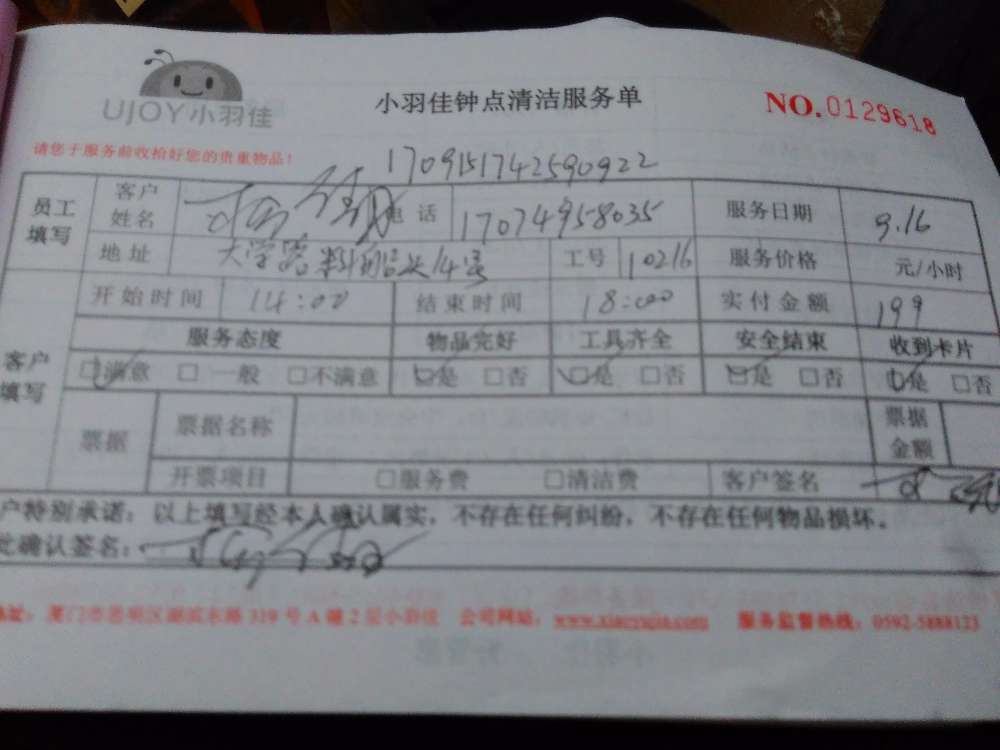 UJOY小羽佳
小羽佳钟点清洁服务单
NO.0129618
请您于服务前收拾好您的贵重物品!
1709151742590922
员工填写 客户姓名 电话 17074958035 服务日期 9.16
地址 大学路 14号 工号 10216 服务价格 元/小时
客户填写 开始时间 14:00 结束时间 18:00 实付金额 199
服务态度 物品完好 工具齐全 安全结束 收到卡片
满意 □ 一般 □不满意 是 □否 是 □否 是 □否 是 □否
票据 票据名称 票据金额
开票项目 □服务费 □清洁费 客户签名
户特别承诺:以上填写经本人确认属实,不存在任何纠纷,不存在任何物品损坏。
此确认签名:
地址:厦门市思明区湖滨东路 319 号 A 幢 2 层小羽佳 公司网站: 服务监督热线:0592-5888123